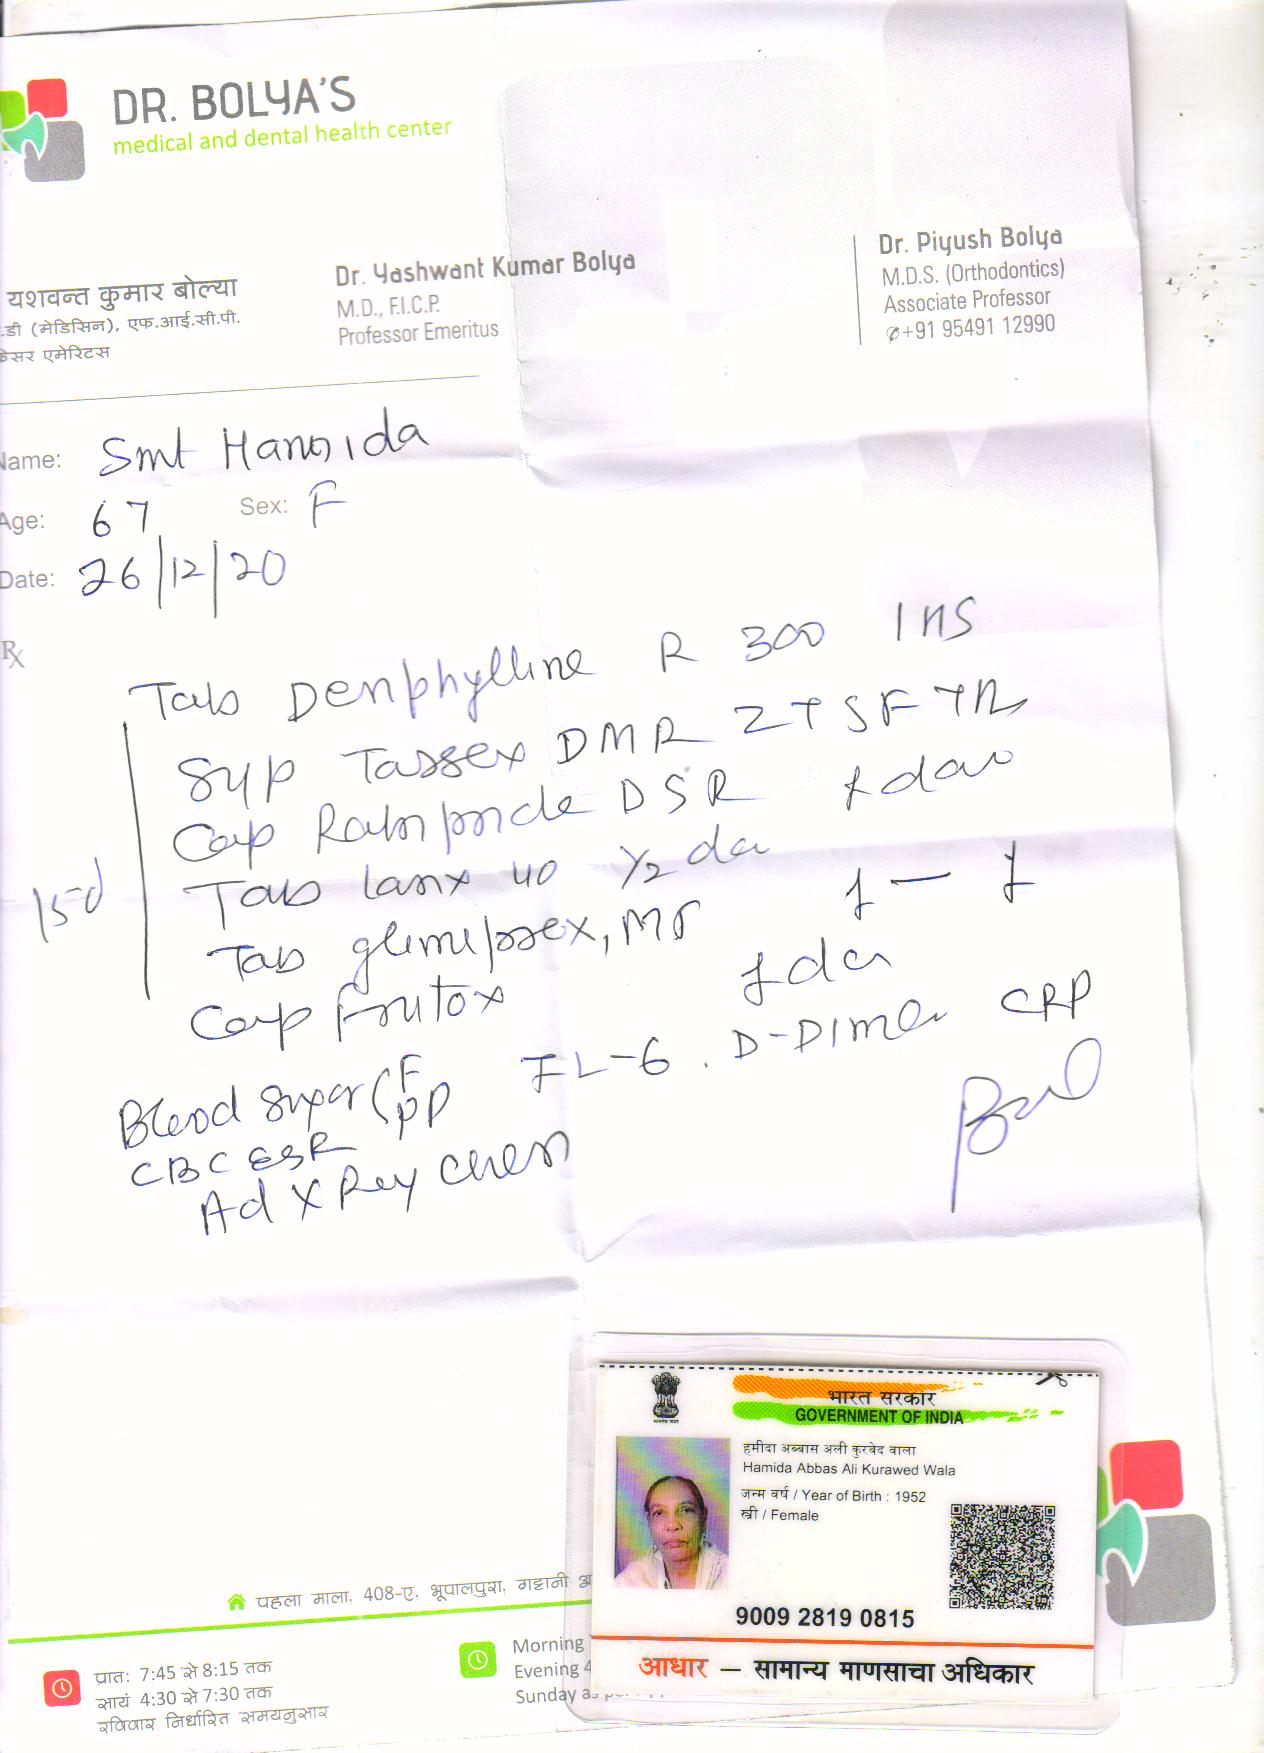 DR. BOLYA'S
medical and dental health center
यशवन्त कुमार बोल्या
.डी (मेडिसिन), एफ.आई.सी.पी.
एमेरिटस
Dr. Yashwant Kumar Bolya
M.D., F.I.C.P.
Professor Emeritus
Dr. Piyush Bolya
M.D.S. (Orthodontics)
Associate Professor
✆+91 95491 12990
Name: Smt Hamida
Age: 67 Sex: F
Date: 26/12/20
Rx
Tab Denphylline R 300 1 HS
Syp Tassex DMR 2 TSF
Cap DSR
Tab Lanx 40 1/2
15d
Tab 1 — 1
Cap
Blood Sugar F PP IL-6 . D-Dimer CRP
CBC ESR
Ad X Ray Chest
भारत सरकार
GOVERNMENT OF INDIA
हमीदा अब्बास अली कुरवेद वाला
Hamida Abbas Ali Kurawed Wala
जन्म वर्ष / Year of Birth : 1952
स्त्री / Female
9009 2819 0815
आधार – सामान्य माणसाचा अधिकार
पहला माला, 408-ए, भूपालपुरा, गट्टानी
प्रातः 7:45 से 8:15 तक
सायं 4:30 से 7:30 तक
रविवार निर्धारित समयनुसार
Morning
Evening 4
Sunday as